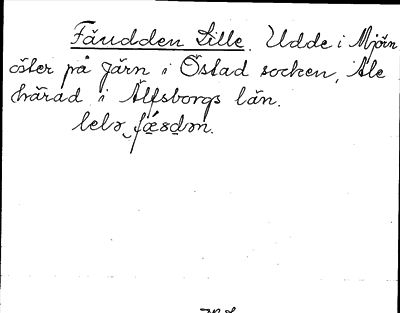 Fäudden Lille. Udde i Mjörn
öster på Järn i Östad socken, Ale
härad i Älfsborgs län.
lelə fǽsdən.